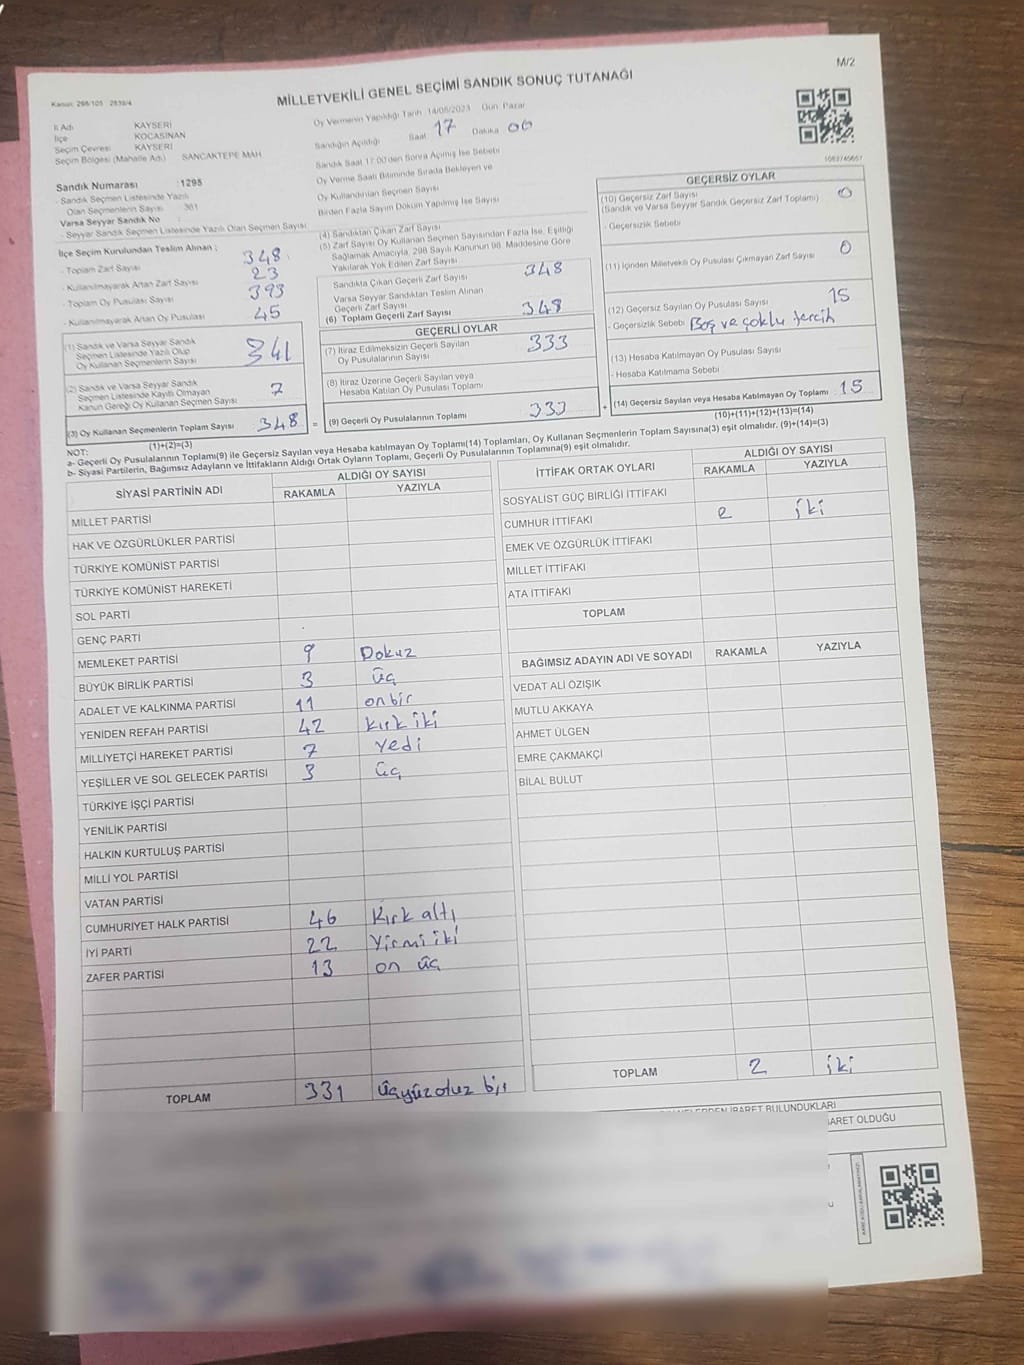 M/2
Kanun: 298/105 2839/4
MİLLETVEKİLİ GENEL SEÇİMİ SANDIK SONUÇ TUTANAĞI
İl Adı KAYSERİ
İlçe KOCASİNAN
Seçim Çevresi KAYSERİ
Seçim Bölgesi (Mahalle Adı) SANCAKTEPE MAH
Oy Vermenin Yapıldığı Tarih :14/05/2023 Gün: Pazar
Sandığın Açıldığı Saat 17 Dakika 00
Sandık Saat 17:00'den Sonra Açılmış İse Sebebi
Oy Verme Saati Bitiminde Sırada Bekleyen ve
Oy Kullandırılan Seçmen Sayısı
Birden Fazla Sayım Döküm Yapılmış İse Sayısı
Sandık Numarası :1295
- Sandık Seçmen Listesinde Yazılı
Olan Seçmenlerin Sayısı : 361
Varsa Seyyar Sandık No :
- Seyyar Sandık Seçmen Listesinde Yazılı Olan Seçmen Sayısı
İlçe Seçim Kurulundan Teslim Alınan ;
- Toplam Zarf Sayısı 348
- Kullanılmayarak Artan Zarf Sayısı 23
- Toplam Oy Pusulası Sayısı 393
- Kullanılmayarak Artan Oy Pusulası 45
(1) Sandık ve Varsa Seyyar Sandık
Seçmen Listesinde Yazılı Olup
Oy Kullanan Seçmenlerin Sayısı 341
(2) Sandık ve Varsa Seyyar Sandık
Seçmen Listesinde Kayıtlı Olmayan
Kanun Gereği Oy Kullanan Seçmen Sayısı 7
(3) Oy Kullanan Seçmenlerin Toplam Sayısı 348 =
(1)+(2)=(3)
(4) Sandıktan Çıkan Zarf Sayısı
(5) Zarf Sayısı Oy Kullanan Seçmen Sayısından Fazla İse, Eşitliği
Sağlamak Amacıyla, 298 Sayılı Kanunun 98. Maddesine Göre
Yakılarak Yok Edilen Zarf Sayısı
Sandıkta Çıkan Geçerli Zarf Sayısı 348
Varsa Seyyar Sandıktan Teslim Alınan
Geçerli Zarf Sayısı
(6) Toplam Geçerli Zarf Sayısı 348
GEÇERLİ OYLAR
(7) İtiraz Edilmeksizin Geçerli Sayılan
Oy Pusulalarının Sayısı 333
(8) İtiraz Üzerine Geçerli Sayılan veya
Hesaba Katılan Oy Pusulası Toplamı
(9) Geçerli Oy Pusulalarının Toplamı 333 +
GEÇERSİZ OYLAR
(10) Geçersiz Zarf Sayısı
(Sandık ve Varsa Seyyar Sandık Geçersiz Zarf Toplamı) 0
- Geçersizlik Sebebi
(11) İçinden Milletvekili Oy Pusulası Çıkmayan Zarf Sayısı 0
(12) Geçersiz Sayılan Oy Pusulası Sayısı 15
- Geçersizlik Sebebi Boş ve çoklu tercih
(13) Hesaba Katılmayan Oy Pusulası Sayısı
- Hesaba Katılmama Sebebi
(14) Geçersiz Sayılan veya Hesaba Katılmayan Oy Toplamı 15
(10)+(11)+(12)+(13)=(14)
NOT:
a- Geçerli Oy Pusulalarının Toplamı(9) ile Geçersiz Sayılan veya Hesaba katılmayan Oy Toplamı(14) Toplamları, Oy Kullanan Seçmenlerin Toplam Sayısına(3) eşit olmalıdır. (9)+(14)=(3)
b- Siyasi Partilerin, Bağımsız Adayların ve İttifakların Aldığı Ortak Oyların Toplamı, Geçerli Oy Pusulalarının Toplamına(9) eşit olmalıdır.
SİYASİ PARTİNİN ADI ALDIĞI OY SAYISI
RAKAMLA YAZIYLA
MİLLET PARTİSİ
HAK VE ÖZGÜRLÜKLER PARTİSİ
TÜRKİYE KOMÜNİST PARTİSİ
TÜRKİYE KOMÜNİST HAREKETİ
SOL PARTİ
GENÇ PARTİ
MEMLEKET PARTİSİ 9 Dokuz
BÜYÜK BİRLİK PARTİSİ 3 üç
ADALET VE KALKINMA PARTİSİ 11 onbir
YENİDEN REFAH PARTİSİ 42 kırk iki
MİLLİYETÇİ HAREKET PARTİSİ 7 yedi
YEŞİLLER VE SOL GELECEK PARTİSİ 3 üç
TÜRKİYE İŞÇİ PARTİSİ
YENİLİK PARTİSİ
HALKIN KURTULUŞ PARTİSİ
MİLLİ YOL PARTİSİ
VATAN PARTİSİ
CUMHURİYET HALK PARTİSİ 46 Kırk altı
İYİ PARTİ 22 Yirmi iki
ZAFER PARTİSİ 13 on üç
TOPLAM 331 üçyüzotuz bir
İTTİFAK ORTAK OYLARI ALDIĞI OY SAYISI
RAKAMLA YAZIYLA
SOSYALİST GÜÇ BİRLİĞİ İTTİFAKI
CUMHUR İTTİFAKI 2 iki
EMEK VE ÖZGÜRLÜK İTTİFAKI
MİLLET İTTİFAKI
ATA İTTİFAKI
TOPLAM
BAĞIMSIZ ADAYIN ADI VE SOYADI RAKAMLA YAZIYLA
VEDAT ALİ ÖZIŞIK
MUTLU AKKAYA
AHMET ÜLGEN
EMRE ÇAKMAKÇİ
BİLAL BULUT
TOPLAM 2 iki
İBARET BULUNDUKLARI
ARET OLDUĞU